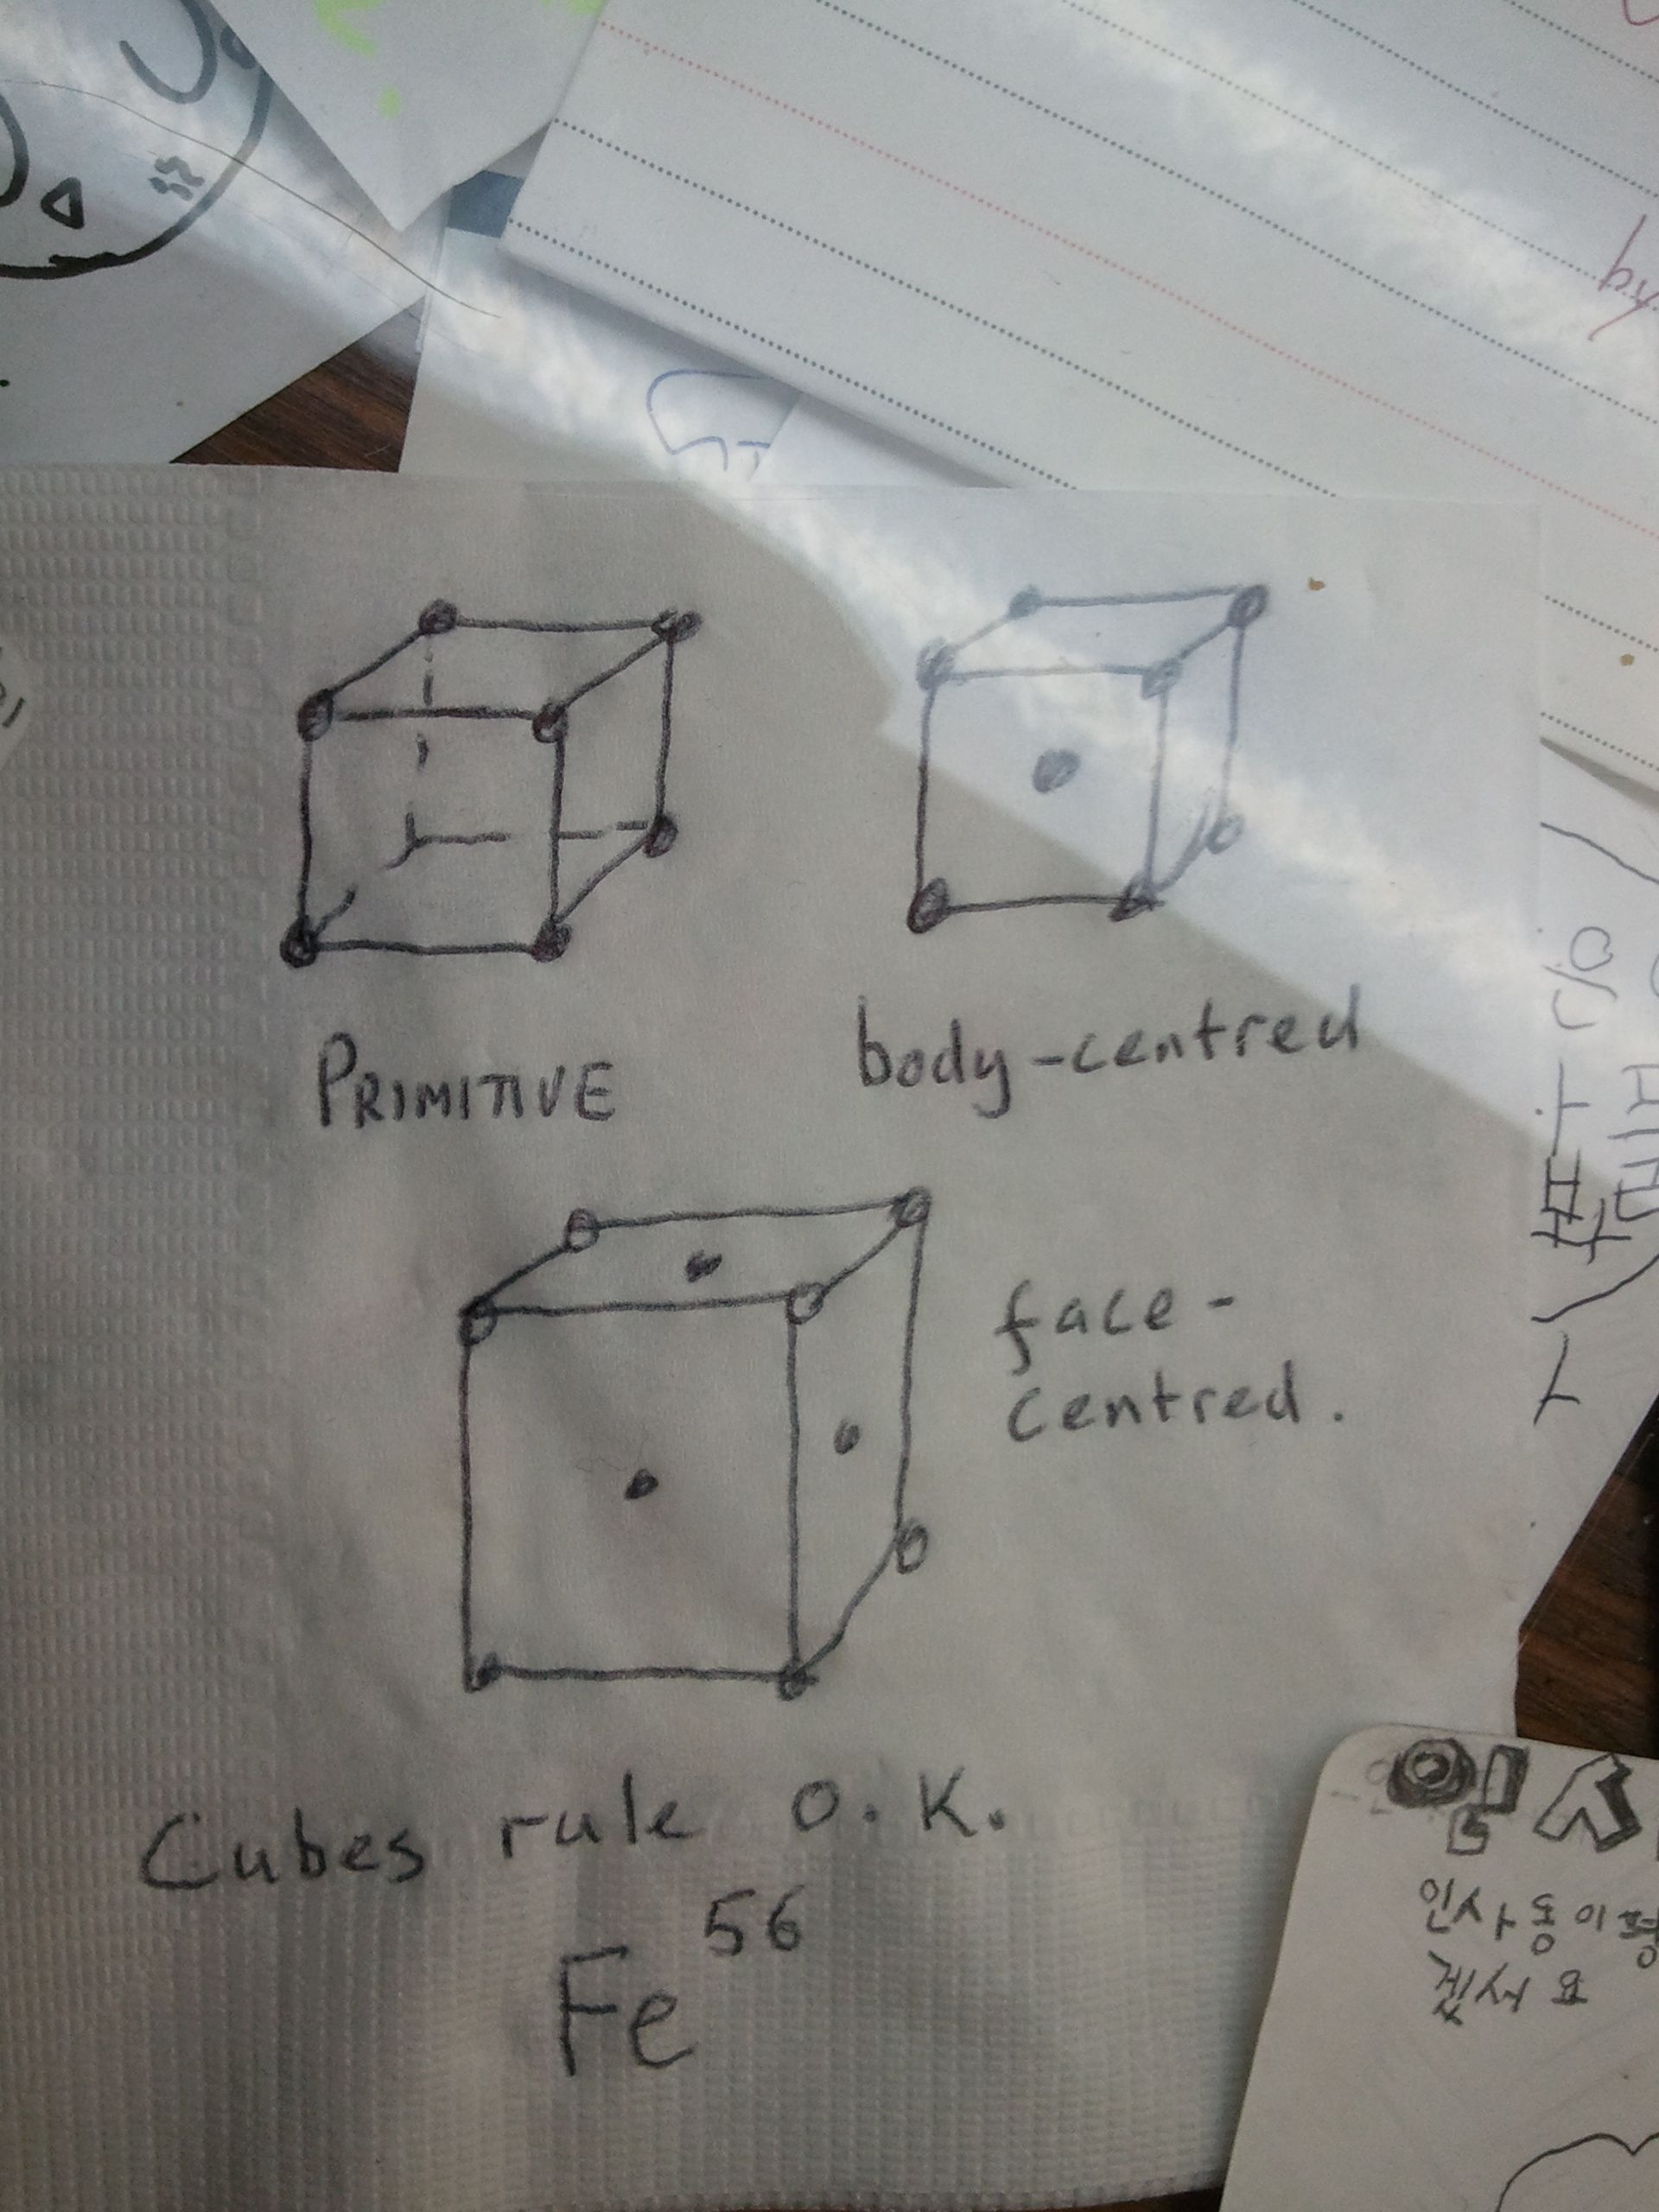 by
PRIMITIVE
body-centred
face-
centred.
Cubes rule O.K.
56
Fe
인사동이
계셔요